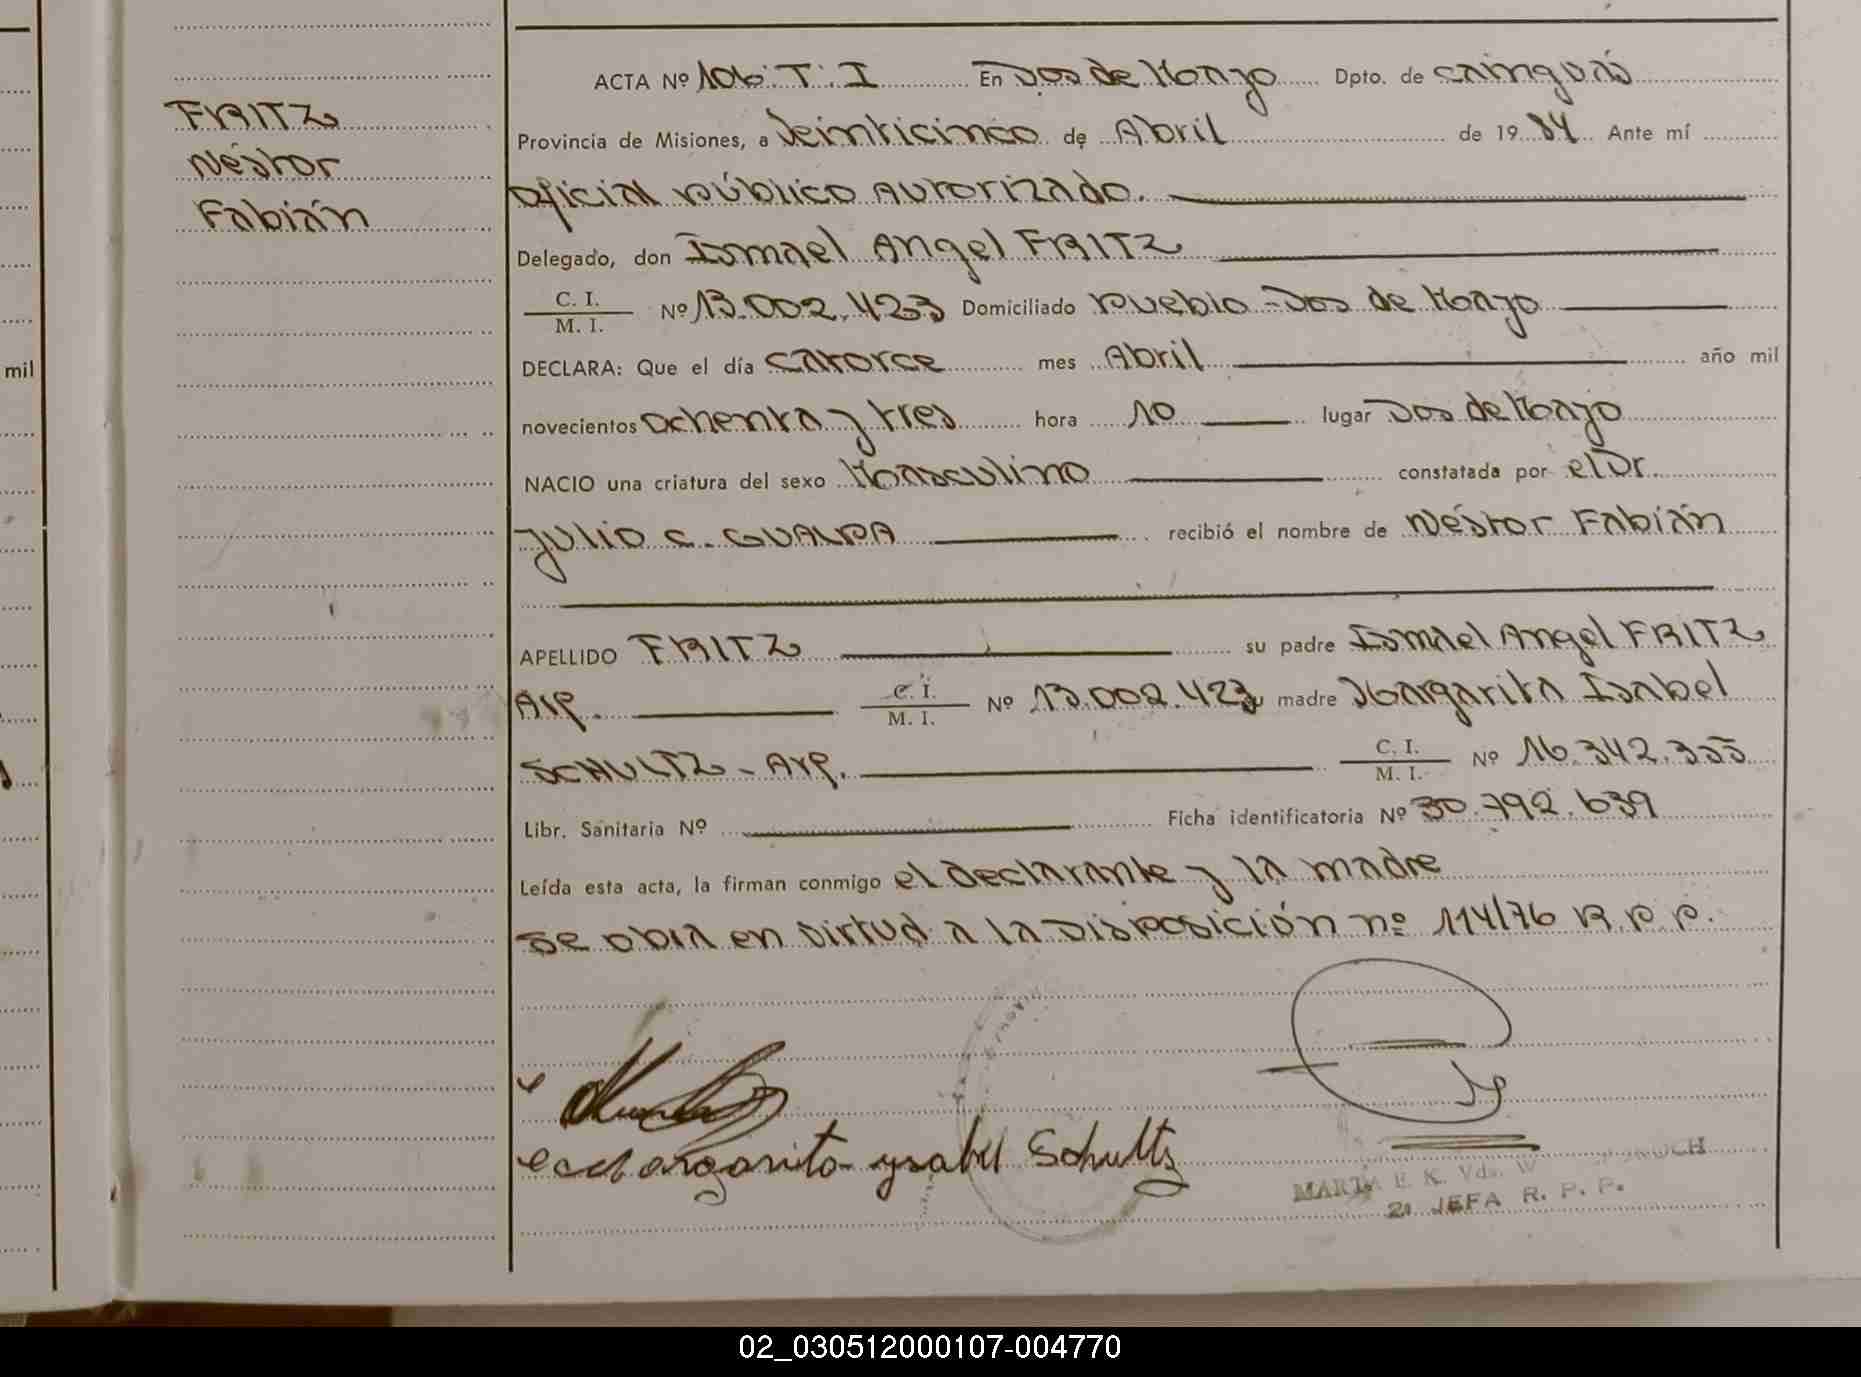 FRITZ
Néstor
Fabián
mil
ACTA Nº 106. T. I En Dos de Mayo Dpto. de Cainguás
Provincia de Misiones, a Veinticinco de Abril de 19 84 Ante mí
Oficial público Autorizado.
Delegado, don Ismael Angel FRITZ
C. I. / M. I. Nº 13.002.423 Domiciliado Pueblo - Dos de Mayo
DECLARA: Que el día catorce mes Abril año mil
novecientos Ochenta y tres hora 10 lugar Dos de Mayo
NACIO una criatura del sexo Masculino constatada por el Dr.
Julio C. GUALPA recibió el nombre de Néstor Fabián
APELLIDO FRITZ su padre Ismael Angel FRITZ
Arg. C. I. / M. I. Nº 13.002.423 madre Margarita Isabel
SCHULTZ - Arg. C. I. / M. I. Nº 16.342.355
Libr. Sanitaria Nº Ficha identificatoria Nº 30.792.639
Leída esta acta, la firman conmigo el declarante y la madre
Se obra en virtud a la Disposición nº 114/76 R.P.P.
Margarita ysabel Schultz
MARTA E. K. Vda. W
2º JEFA R. P. P.
02_030512000107-004770